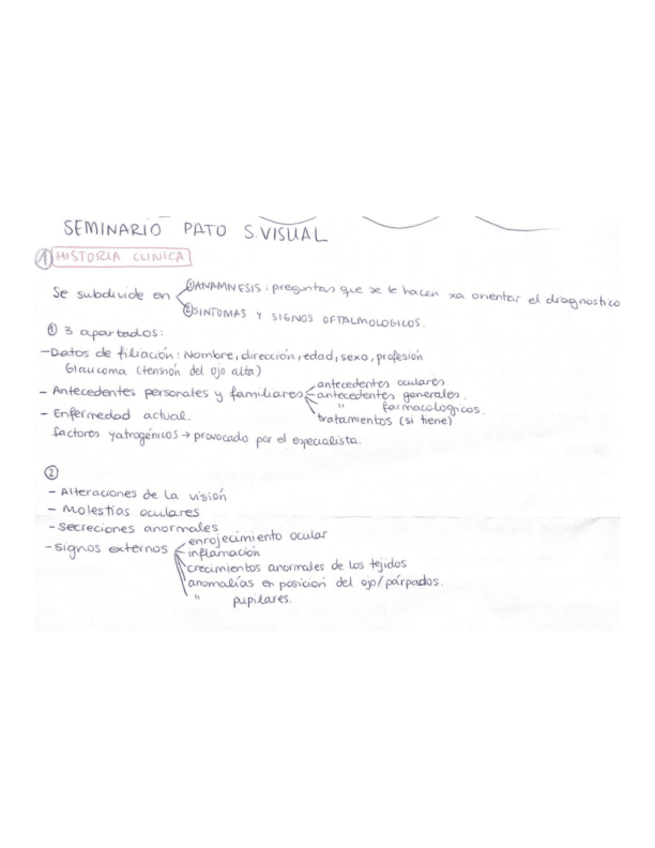 SEMINARIO PATO S.VISUAL
① HISTORIA CLINICA
Se subdivide en
①ANAMNESIS: preguntas que se le hacen xa orientar el diagnostico
②SINTOMAS Y SIGNOS OFTALMOLOGICOS.
① 3 apartados:
-Datos de filiación: Nombre, dirección, edad, sexo, profesión
Glaucoma (tensión del ojo alta)
- Antecedentes personales y familiares
antecedentes oculares
antecedentes generales.
" farmacologicos.
tratamientos (si tiene)
- Enfermedad actual.
factores yatrogénicos → provocado por el especialista.
②
- Alteraciones de la visión
- Molestias oculares
- secreciones anormales
- signos externos
enrojecimiento ocular
inflamación
crecimientos anormales de los tejidos
anomalías en posición del ojo/párpados.
" pupilares.